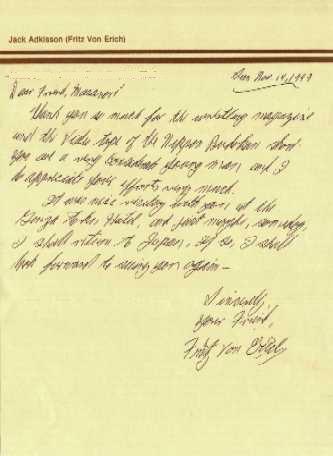 Jack Adkisson (Fritz Von Erich)
Sun Nov. 14, 1993
Dear Friend, Masanori
Thank you so much for the wrestling magazine
and the video tape of the Nippon Budokan show.
You are a very considerate young man, and I
do appreciate your efforts very much.
It was nice visiting with you at the
Ginza Hotel, and just maybe, someday,
I shall return to Japan, if so, I shall
look forward to seeing you again —
Sincerely,
Your Friend,
Fritz Von Erich